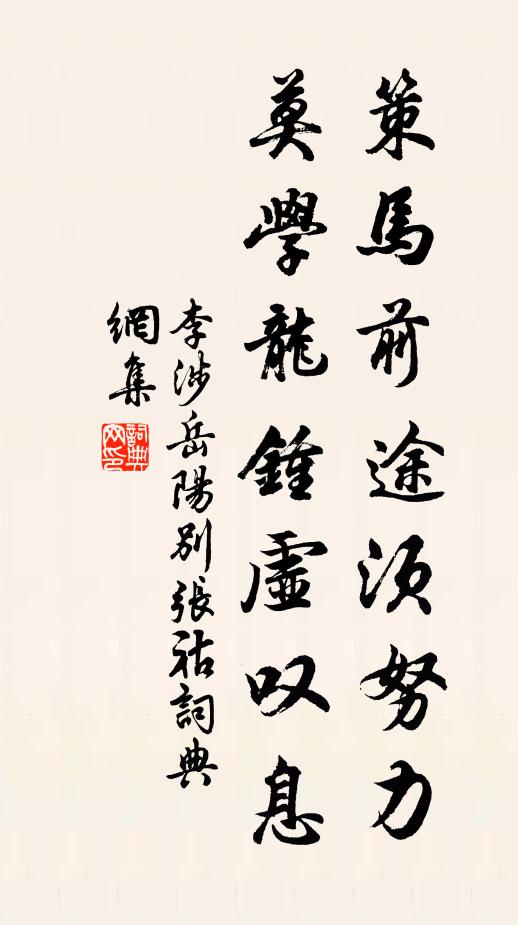 策馬前途須努力
莫學龍鍾虛叹息
李涉岳陽别張祜詞典
網集
詞典
网印